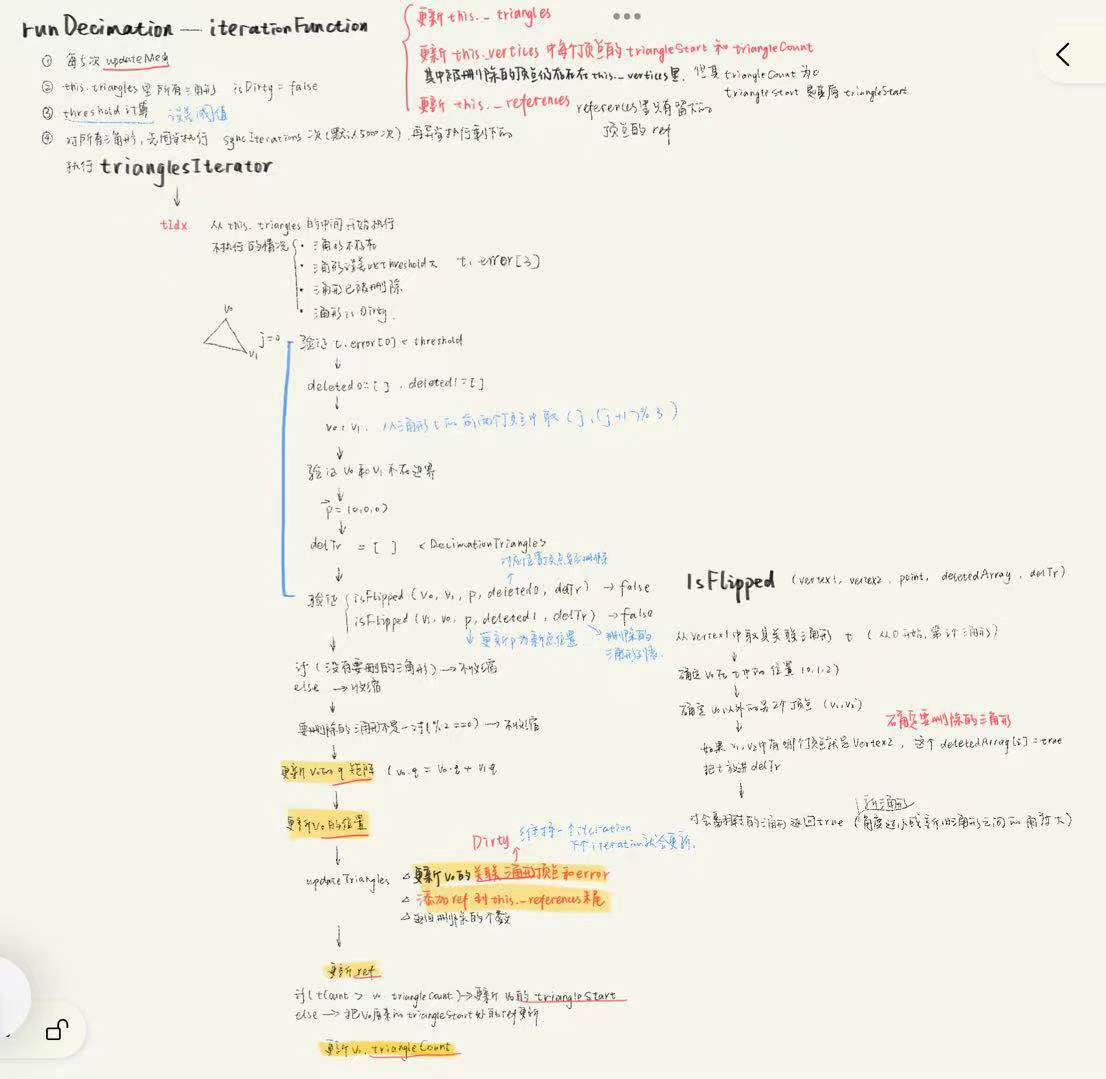 runDecimation — iterationFunction
① 每5次 updateMesh
② this.triangles里所有三角形 isDirty = false
③ threshold计算 误差阈值
④ 对所有三角形,先同步执行 syncIterations 次(默认5000次),再异步执行剩下的
执行 trianglesIterator
更新 this._triangles
更新 this._vertices 中每个顶点的 triangleStart 和 triangleCount
其中被删除的顶点仍存在在this._vertices里,但其 triangleCount 为0
triangleStart 是最后 triangleStart
更新 this._references references里只有留下的
顶点的 ref
tIdx 从 this._triangles 的中间开始执行
不执行的情况
· 三角形不存在
· 三角形误差比threshold大 t.error[3]
· 三角形已被删除
· 三角形isDirty.
v₀
v₁
j=0 验证 t.error[0] < threshold
↓
deleted0=[ ] , deleted1=[ ]
↓
v₀, v₁. 从三角形 t 的前两个顶点中取 ( j , (j+1)%3 )
↓
验证 v₀ 和 v₁ 不在边界
↓
p = (0,0,0)
↓
delTr = [ ] <DecimationTriangle>
↓
验证 isFlipped (v₀, v₁, p, deleted0, delTr) → false
isFlipped (v₁, v₀, p, deleted1, delTr) → false
↓ 更新p为新点位置
删除的
三角形列表
if (没有要删的三角形) → 不收缩
else → 收缩
↓
要删除的三角形不是一对(%2 ===0) → 不收缩
↓
更新 v₀的 q 矩阵 (v₀.q = v₀.q + v₁.q
↓
更新v₀的位置
↓
Dirty
维持一个iteration
下个iteration就会更新.
updateTriangles △ 更新v₀的关联三角形顶点和error
△ 添加ref到this._references末尾
△ 返回删除的个数
↓
更新ref
if(tCount > v₀.triangleCount)→更新 v₀的 triangleStart
else → 把v₀原来的triangleStart处的ref更新
更新v₀.triangleCount
IsFlipped (vertex1, vertex2, point, deletedArray, delTr)
从vertex1中取其关联三角形 t (从0开始,第i个三角形)
↓
确定v₀在t中的位置(0,1,2)
↓
确定v₀以外的另2个顶点 (v₁,v₂)
↓
确定要删除的三角形
如果v₁,v₂中有哪个顶点就是Vertex2, 这个deletedArray[i]=true
把t放进delTr
↓
新三角形
对会翻转的三角形返回true (角度过小或新旧三角形之间的角度大)